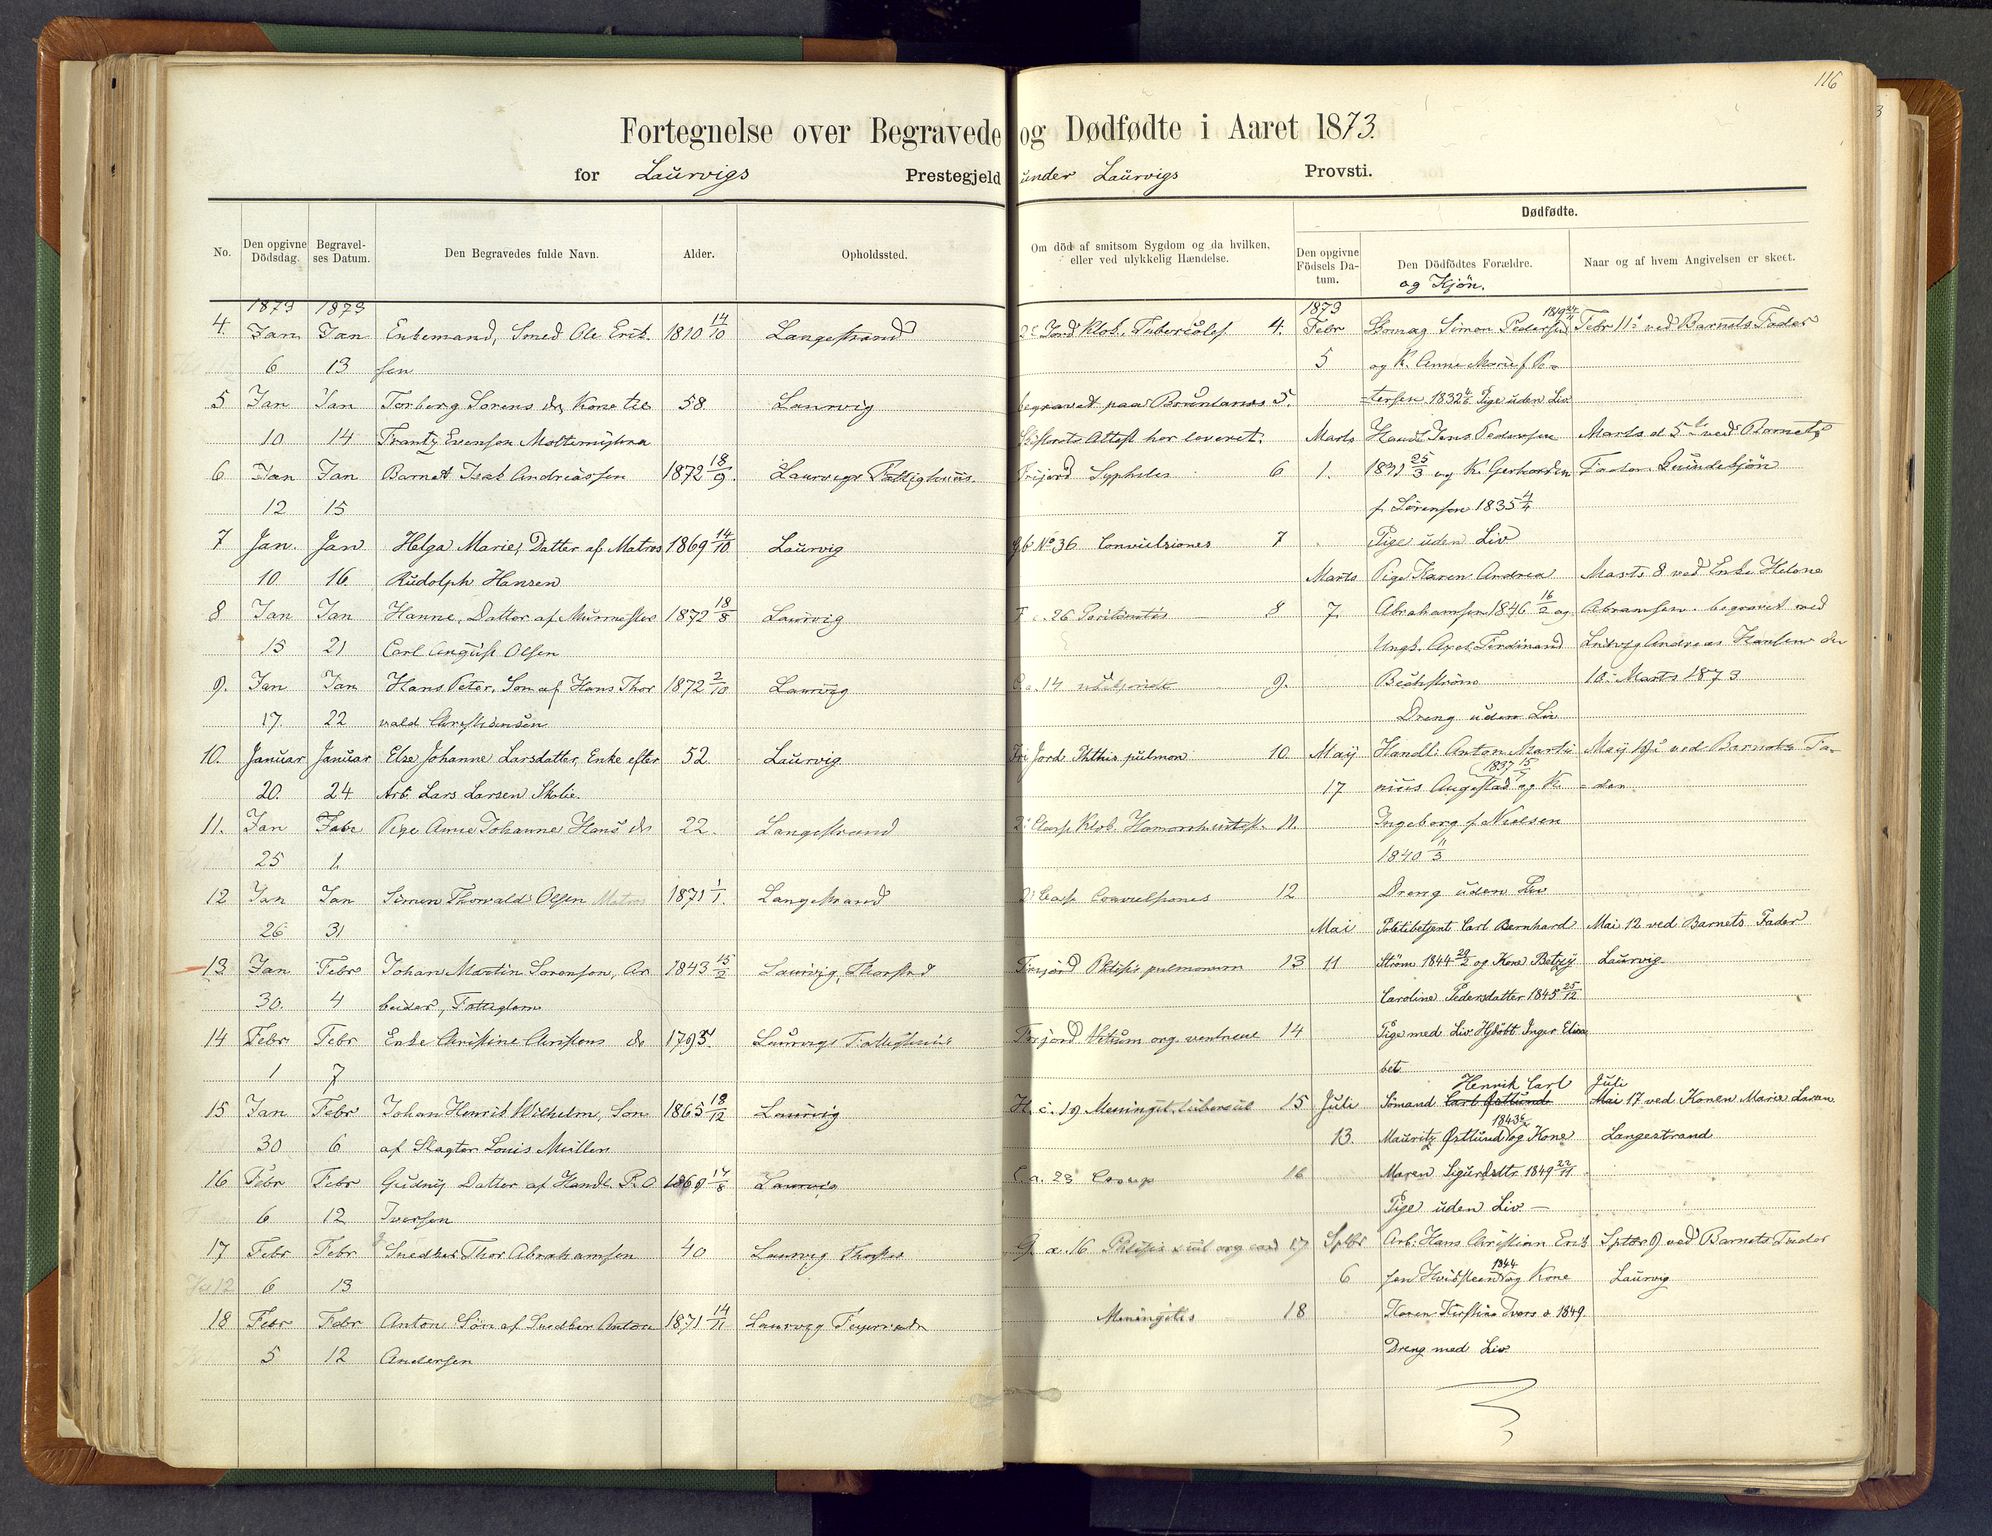 116
Fortegnelse over Begravede og Dødfødte i Aaret 1873.
for Laurvigs Prestegjeld under Laurvigs Provsti.
No. Den opgivne Dödsdag. Begravelses Datum. Den Begravedes fulde Navn. Alder. Opholdssted.
Om död af smitsom Sygdom og da hvilken, eller ved ulykkelig Hændelse.
Dødfødte.
Den opgivne Födsels Datum. Den Dödfödtes Forældre. og Kjön. Naar og af hvem Angivelsen er skeet.
1873 1873
4. Jan Jan Enkemand, Smed Ole Erik- 1810 14/10 Langestrand
6 13 sen
5 Jan Jan Torberg Sorens d. Kone til 58. Laurvig
10 14 Frantz Evensen
6 Jan Jan Barnet Isak Andreassen 1872 18/9. Laurvigs Fattighuus.
12 15
7 Jan. Jan Helga Marie, Datter af Matros 1869 14/10 Laurvig
10 16. Rudolph Hansen
8 Jan Jan Hanne, Datter af Murmester 1872 18/8 Laurvig
13 21 Carl August Olsen
9. Jan Jan Hans Peter, Søn af Hans Thor 1872 2/10 Laurvig
17. 22 vald Christensen
10. Januar Januar Else Johanne Larsdatter, Enke efter 52. Laurvig
20. 24 Arb. Lars Larsen Skolie.
11. Jan Febr Pige Anne Johanne Hans d. 22. Langestrand
25 1.
12 Jan Jan Simen Thorvald Olsen Matros 1871 1/1. Langestrand
26 31
13 Jan Febr Johan Martin Sorensen, Ar 1843 15/2 Laurvig, Thorstrd
30. 4 beider, Fattiglem
14 Febr Febr Enke Christine Christens d. 1793. Laurvigs Fattighuus
1 7
15 Jan Febr Johan Henrik Wilhelm, Son 1865 18/12 Laurvig
30 6 af Slagter Louis Müller
16 Febr Febr Gudny Datter af Handl. P. O 1869 17/8 Laurvig
6 12 Iversen
17 Febr Febr Snedker Thor Abrahamsen 40 Laurvig
6 13
18 Febr Febr Anton Søn af Snedker Anton 1871 14/11 Laurvig
5 12 Andersen
Jord Klob. Tuberculos 4.
begravet paa Brunlanes 5.
Attest har leveret.
Frijord Syphilis 6
No 36 Convulsiones 7
26 Peritonitis 8
C a. 14 9.
Fri Jord Phthis pulmon 10
Klob. 11.
Convulsiones 12
Frijord Phtisis pulmonum 13
Frijord Vitium org. 14
H. c. 19 Meningit. tubercul 15
C a. 23 Croup 16
G. a. 16 Phtisis 17
Meningitis 18
1873
Febr Skomag Simon Pedersen 1819 Febr 11 ved Barnets Fader
5 og K. Anne Marie f Pe-
tersen 1832 Pige uden Liv
Marts Handl Jens Pedersen Marts d 5te ved Barnets
1. 1831 25/3 og K. Gerhardin Fader
f. Sørensen 1835 4/4
Pige uden Liv
Marts Pige Karen Andrea Marts 8 ved Enke Helene
7. Abrahamsen 1846 16/2 og Abramsen. begravet med
Ungk. Axel Ferdinand Ludvig Andreas Hansen den
Beckstrøm 10 Marts 1873
Dreng uden Liv
Maij Handl: Anton Marti- Maij ved Barnets Fa-
17 nius Augestad 1837 15/7 og K. = der.
Ingeborg f. Nielsen
1840 11/3
Dreng uden Liv
Mai Politibetjent Carl Bernhard Mai 12 ved Barnets Fader
11 Strøm 1844 og Kone Betzy Laurvig.
Caroline Pedersdatter 1845 25/12
Pige med Liv Hjdøbt Inger Elisa
bet
Juli Sømand Carl Østlund Henrik Carl Mai Juli 17 ved Konen Marie Larsen
13. Mauritz Østlund 1843 og Kone Langestrand
Maren Sigurdsdtr. 1849 22/11
Pige uden Liv. —
Sptbr Arb. Hans Christian Erik Sptbr 9 ved Barnets Fader
6 sen Hvidsteen 1844 og Kone Laurvig
Karen Kirstine Ivers d 1849.
Dreng med Liv.